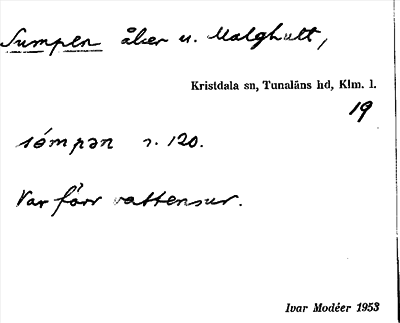 Sumpen åker u. Malghult,
Kristdala sn, Tunaläns hd, Klm. l.
19
sómpən r. 120.
Var förr vattensur.
Ivar Modéer 1953